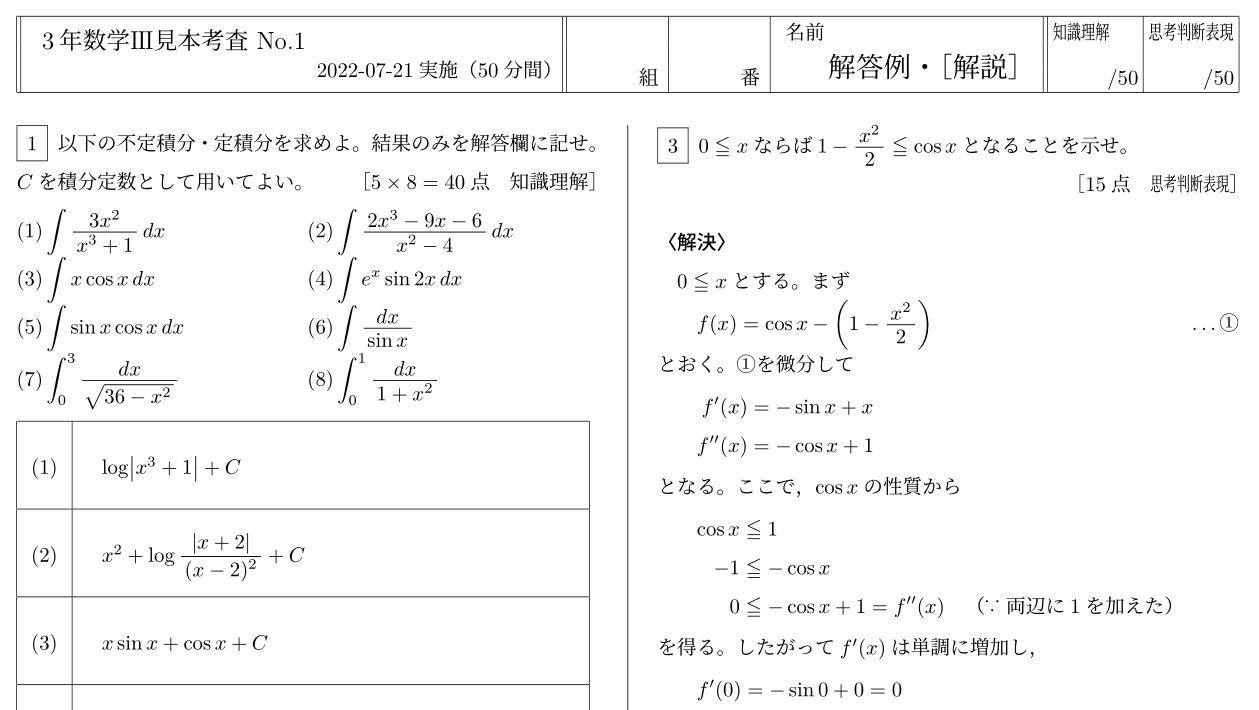 3年数学III見本考査 No.1
2022-07-21 実施（50 分間）
組
番
名前
解答例・［解説］
知識理解
/50
思考判断表現
/50
1 以下の不定積分・定積分を求めよ。結果のみを解答欄に記せ。
C を積分定数として用いてよい。 ［5 × 8 = 40 点 知識理解］
(1) ∫ 3x²/(x³ + 1) dx (2) ∫ (2x³ − 9x − 6)/(x² − 4) dx
(3) ∫ x cos x dx (4) ∫ eˣ sin 2x dx
(5) ∫ sin x cos x dx (6) ∫ dx/sin x
(7) ∫₀³ dx/√(36 − x²) (8) ∫₀¹ dx/(1 + x²)
(1) log|x³ + 1| + C
(2) x² + log |x + 2|/(x − 2)² + C
(3) x sin x + cos x + C
3 0 ≦ x ならば 1 − x²/2 ≦ cos x となることを示せ。
［15 点 思考判断表現］
〈解決〉
0 ≦ x とする。まず
f(x) = cos x − (1 − x²/2) …①
とおく。①を微分して
f′(x) = − sin x + x
f″(x) = − cos x + 1
となる。ここで，cos x の性質から
cos x ≦ 1
−1 ≦ − cos x
0 ≦ − cos x + 1 = f″(x) （∵ 両辺に 1 を加えた）
を得る。したがって f′(x) は単調に増加し，
f′(0) = − sin 0 + 0 = 0